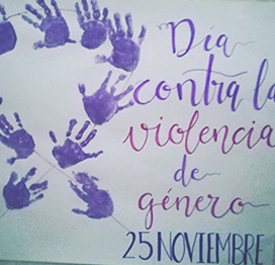 Día
contra la
violencia
de
género
25 NOVIEMBRE